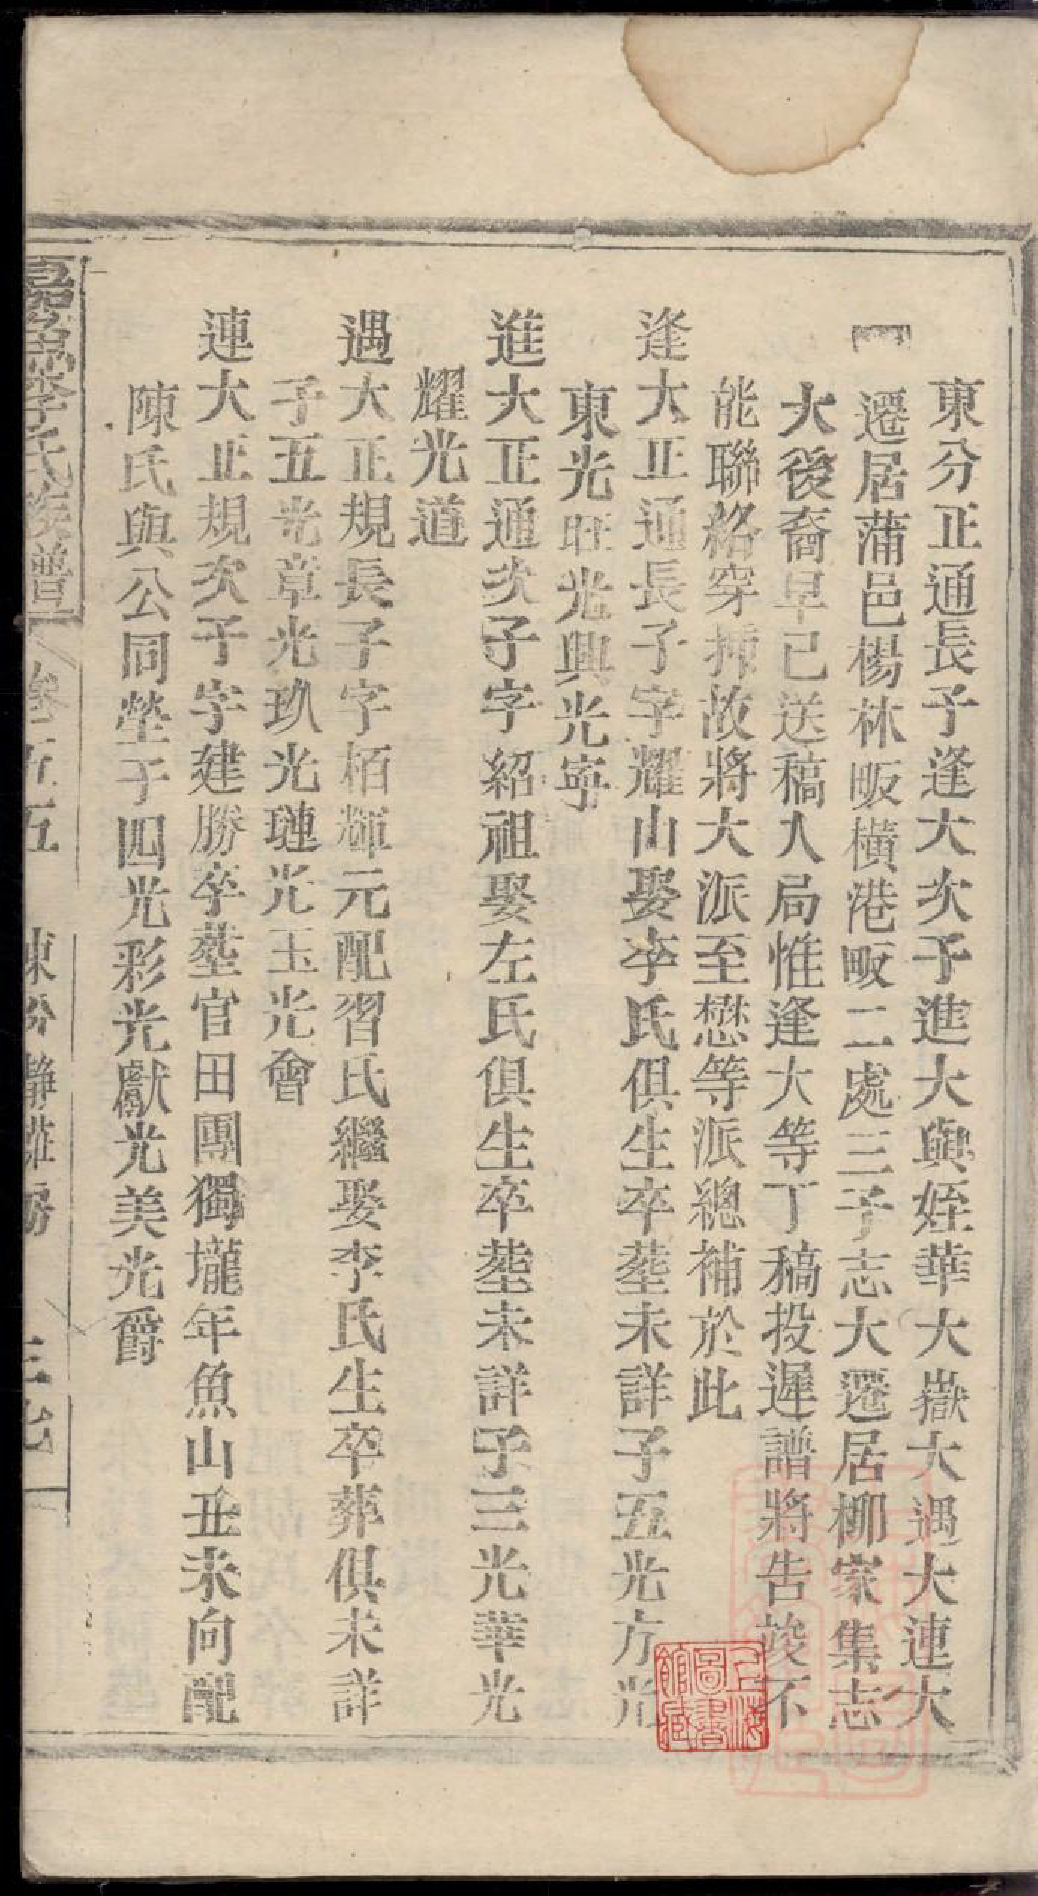 東分正通長子逢大次子進大與姪華大嶽大遇大連大
遷居蒲邑楊林畈橫港畈二處三子志大遷居柳家集志
大後裔早已送稿人局惟逢大等丁稿投遲譜將告竣不
能聯絡穿揷故將大派至懋等派總補於此
逢大正通長子字耀山娶李氏俱生卒塟未詳子五光方光
東光旺光興光寧
進大正通次子字紹祖娶左氏俱生卒塟未詳子三光華光
耀光道
遇大正規長子字栢輝元配習氏繼娶李氏生卒葬俱未詳
子五光章光玖光璉光玉光會
連大正規次子字建勝卒塟官田團獨壠年魚山丑未向配
陳氏與公同塋子四光彩光獻光美光爵
李氏族譜
卷五五
東分
三七
上海圖書館藏